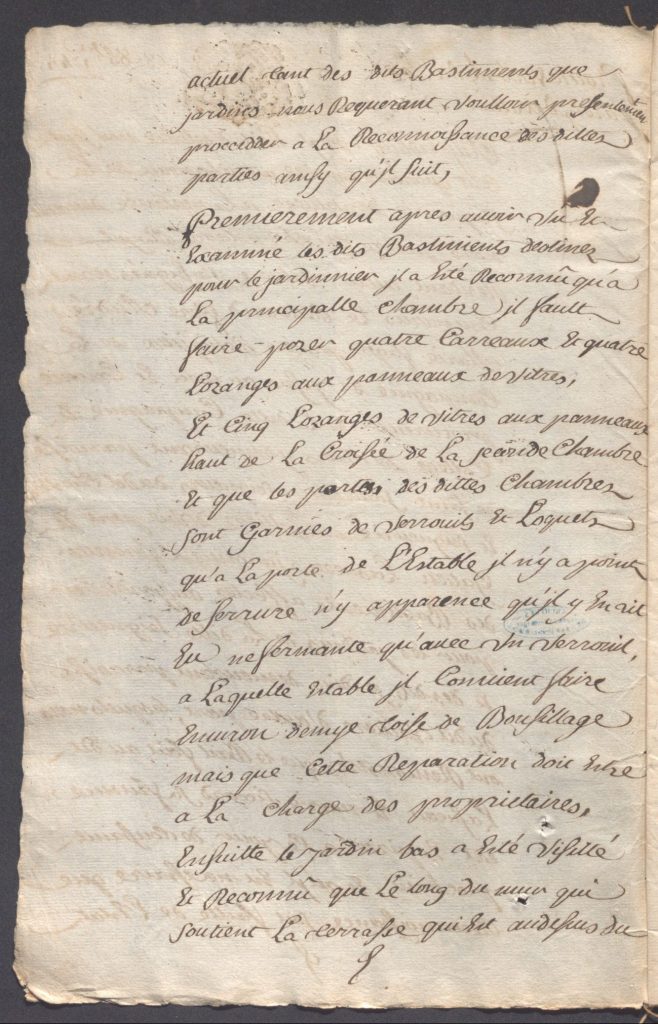 actuel tant des dits Bastiments que
jardins nous Requerant voulloir presentem.t
proceder a La Reconnoissance des dittes
parties ainsy qu'il suit,
Premierement apres avoir vû Et
Examiné les dits Bastiments destinez
pour le jardinnier jl a Eté Reconnû qu'a
La principalle chambre jl fault
faire pozer quatre Carreaux Et quatre
Lozanges aux panneaux de vitres,
Et Cinq Lozanges de vitres aux panneaux
haut de La Croisée de La Chambre
Et que les portes des dittes Chambres
sont Garnies de verrouils Et Loquets
qu'a La porte de L'Estable jl n'y a point
de serrure n'y apparence qu'jl y En ait
Eu ne fermante qu'avec Un verrouil,
a Laquelle Estable jl Convient faire
Environ demye toise de Bousillage
mais que Cette Reparation doit Estre
a La charge des proprietaires,
Ensuitte le jardin bas a Esté visitté
Et Reconnû que Le long du mur qui
soutient La terrasse qui Est audessus du